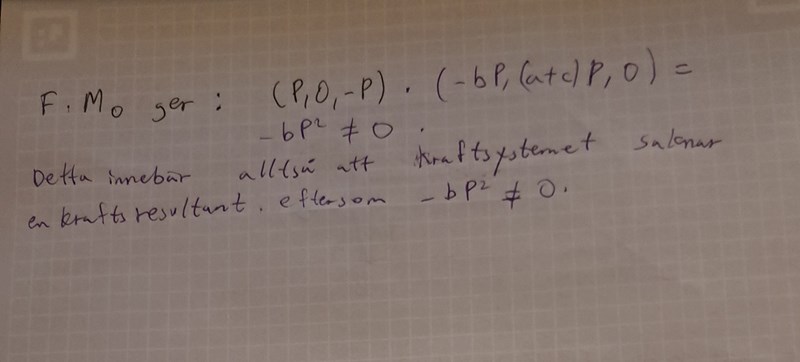 F. Mo ger : (P,0,-P) . (-bP, (a+c)P, 0) =
-bP² ≠ 0 .
Detta innebär alltså att kraftsystemet saknar
en kraftsresultant. eftersom -bP² ≠ 0.